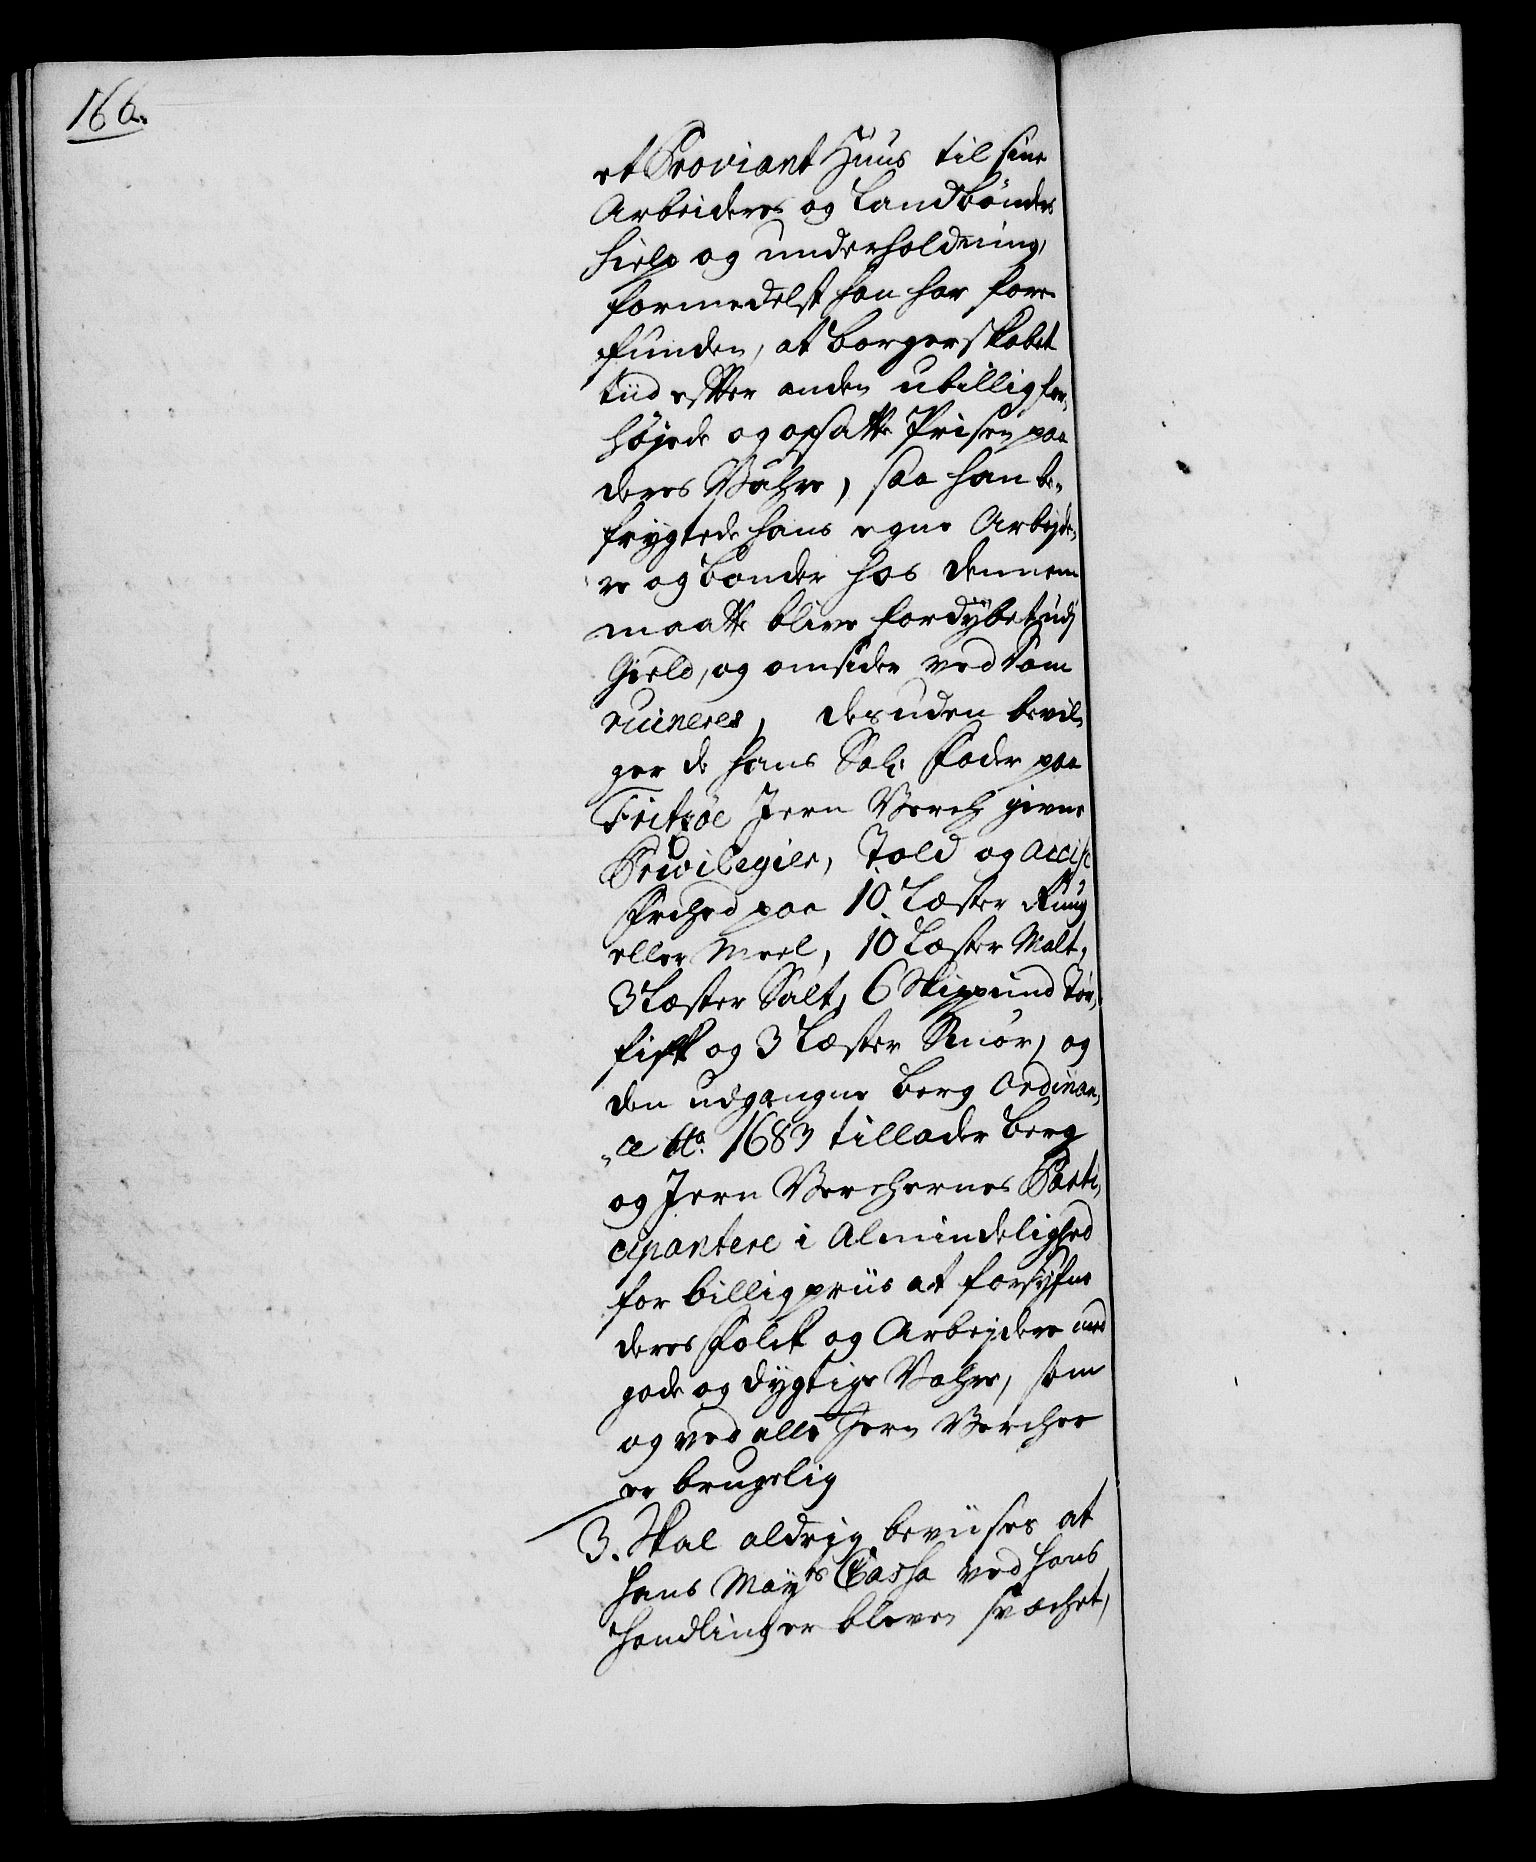 166.
et Proviant Huus til sine
Arbeidere og Landbönders
hielp og underholdning,
formedelst han har for-
funden, at borgerskabet
tiid efter anden ubillig for,
höyede og opsatte Prisen paa
deres Vahre, saa han be,
frygtede hans egne Arbeyde,
re og bönder hos dennem
maatte blive fordybet udj
Gield, og omsider ved Dom
ruineres, desuden bevil,
ger de hans Sal: Fader paa
Fritzöe Jern Verch givne
Privilegier, Told og Accise
Friehed paa 10 Læster Rug
eller Meel, 10 Læster Malt,
3 Læster Salt, 6 Skippund Tör,
fisk og 3 Læster Smör, og
den udgangne berg Ordinan,
„ce Ao. 1683 tillader berg
og Jern Verchernes Parti,
cipantere i Almindelighed
for billig priis at forsyne
deres Folck og Arbeydere med
gode og dygtige Vahre, som
og ved alle Jern Vercher
er brugelig
3. Skal aldrig beviises at
Hans Mayts Cassa ved hans
handling er bleven svæchet,